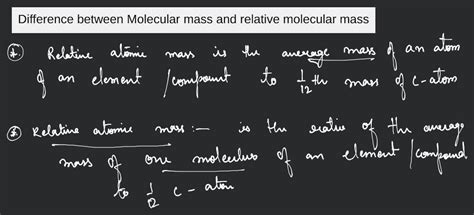 Difference between Molecular mass and relative molecular mass
① Relative atomic mass is the average mass of an atom
of an element /compount to 1/12 th mass of c-atom
② Relative atomic mass :— is the ratio of the average
mass of one molecules of an element /compound
to 1/12 c-atom